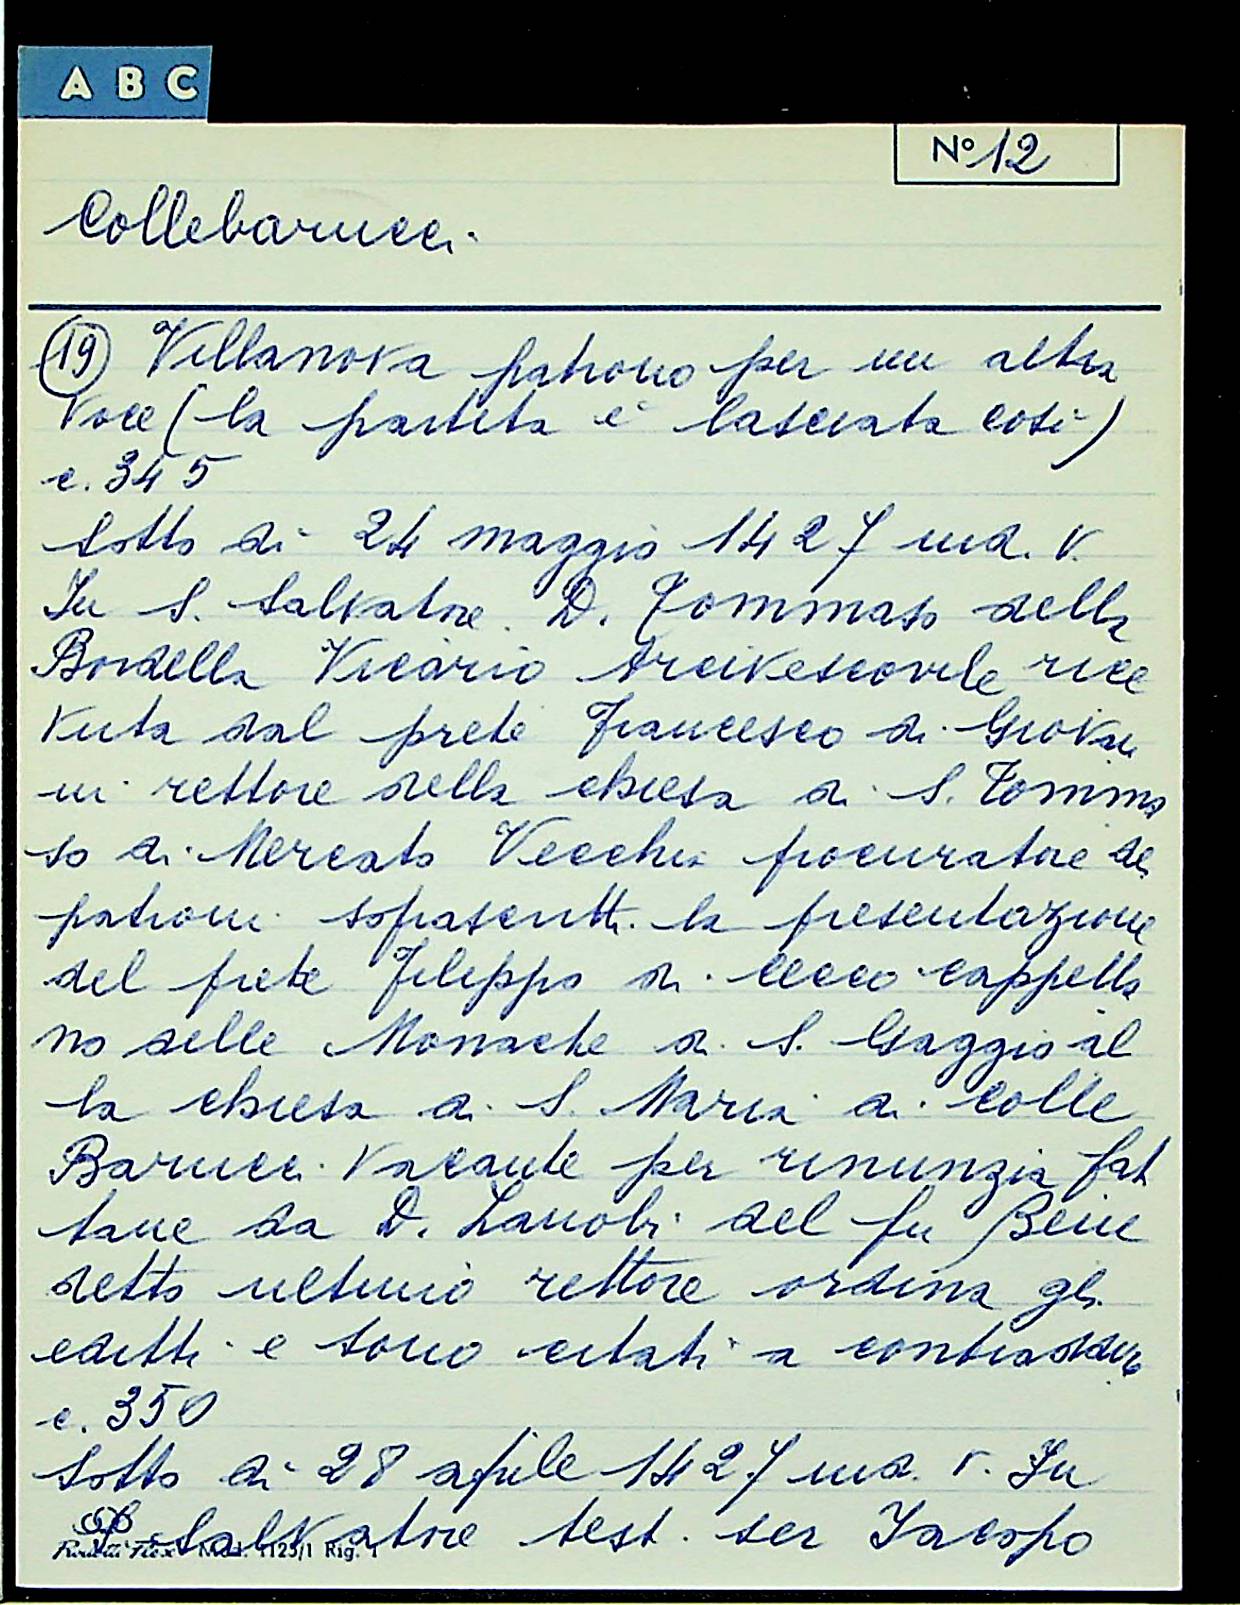 A B C
N° 12
Collebarucci.
19 Villanova patrono per un altra
voce (la partita è lasciata così)
c. 345
Sotto di 24 maggio 1427 ind. V.
In S. Salvatore. D. Tommaso della
Bordella Vicario Arcivescovile rice
vuta dal prete Francesco di Giovan
ni rettore della chiesa di S. Tomma
so di Mercato Vecchio procuratore de
patroni soprascritti la presentazione
del prete Filippo di Cecco cappella
no delle Monache di S. Gaggio al
la chiesa di S. Maria di Colle
Barucci vacante per rinunzia fat
tane da D. Zanobi del fu Bene
detto ultimo rettore ordina gli
editti e sono citati a contraddire
c. 350
Sotto di 28 aprile 1427 ind. V. In
S. Salvatore test. ser Iacopo
Mod. 1125/1 Rig. 1